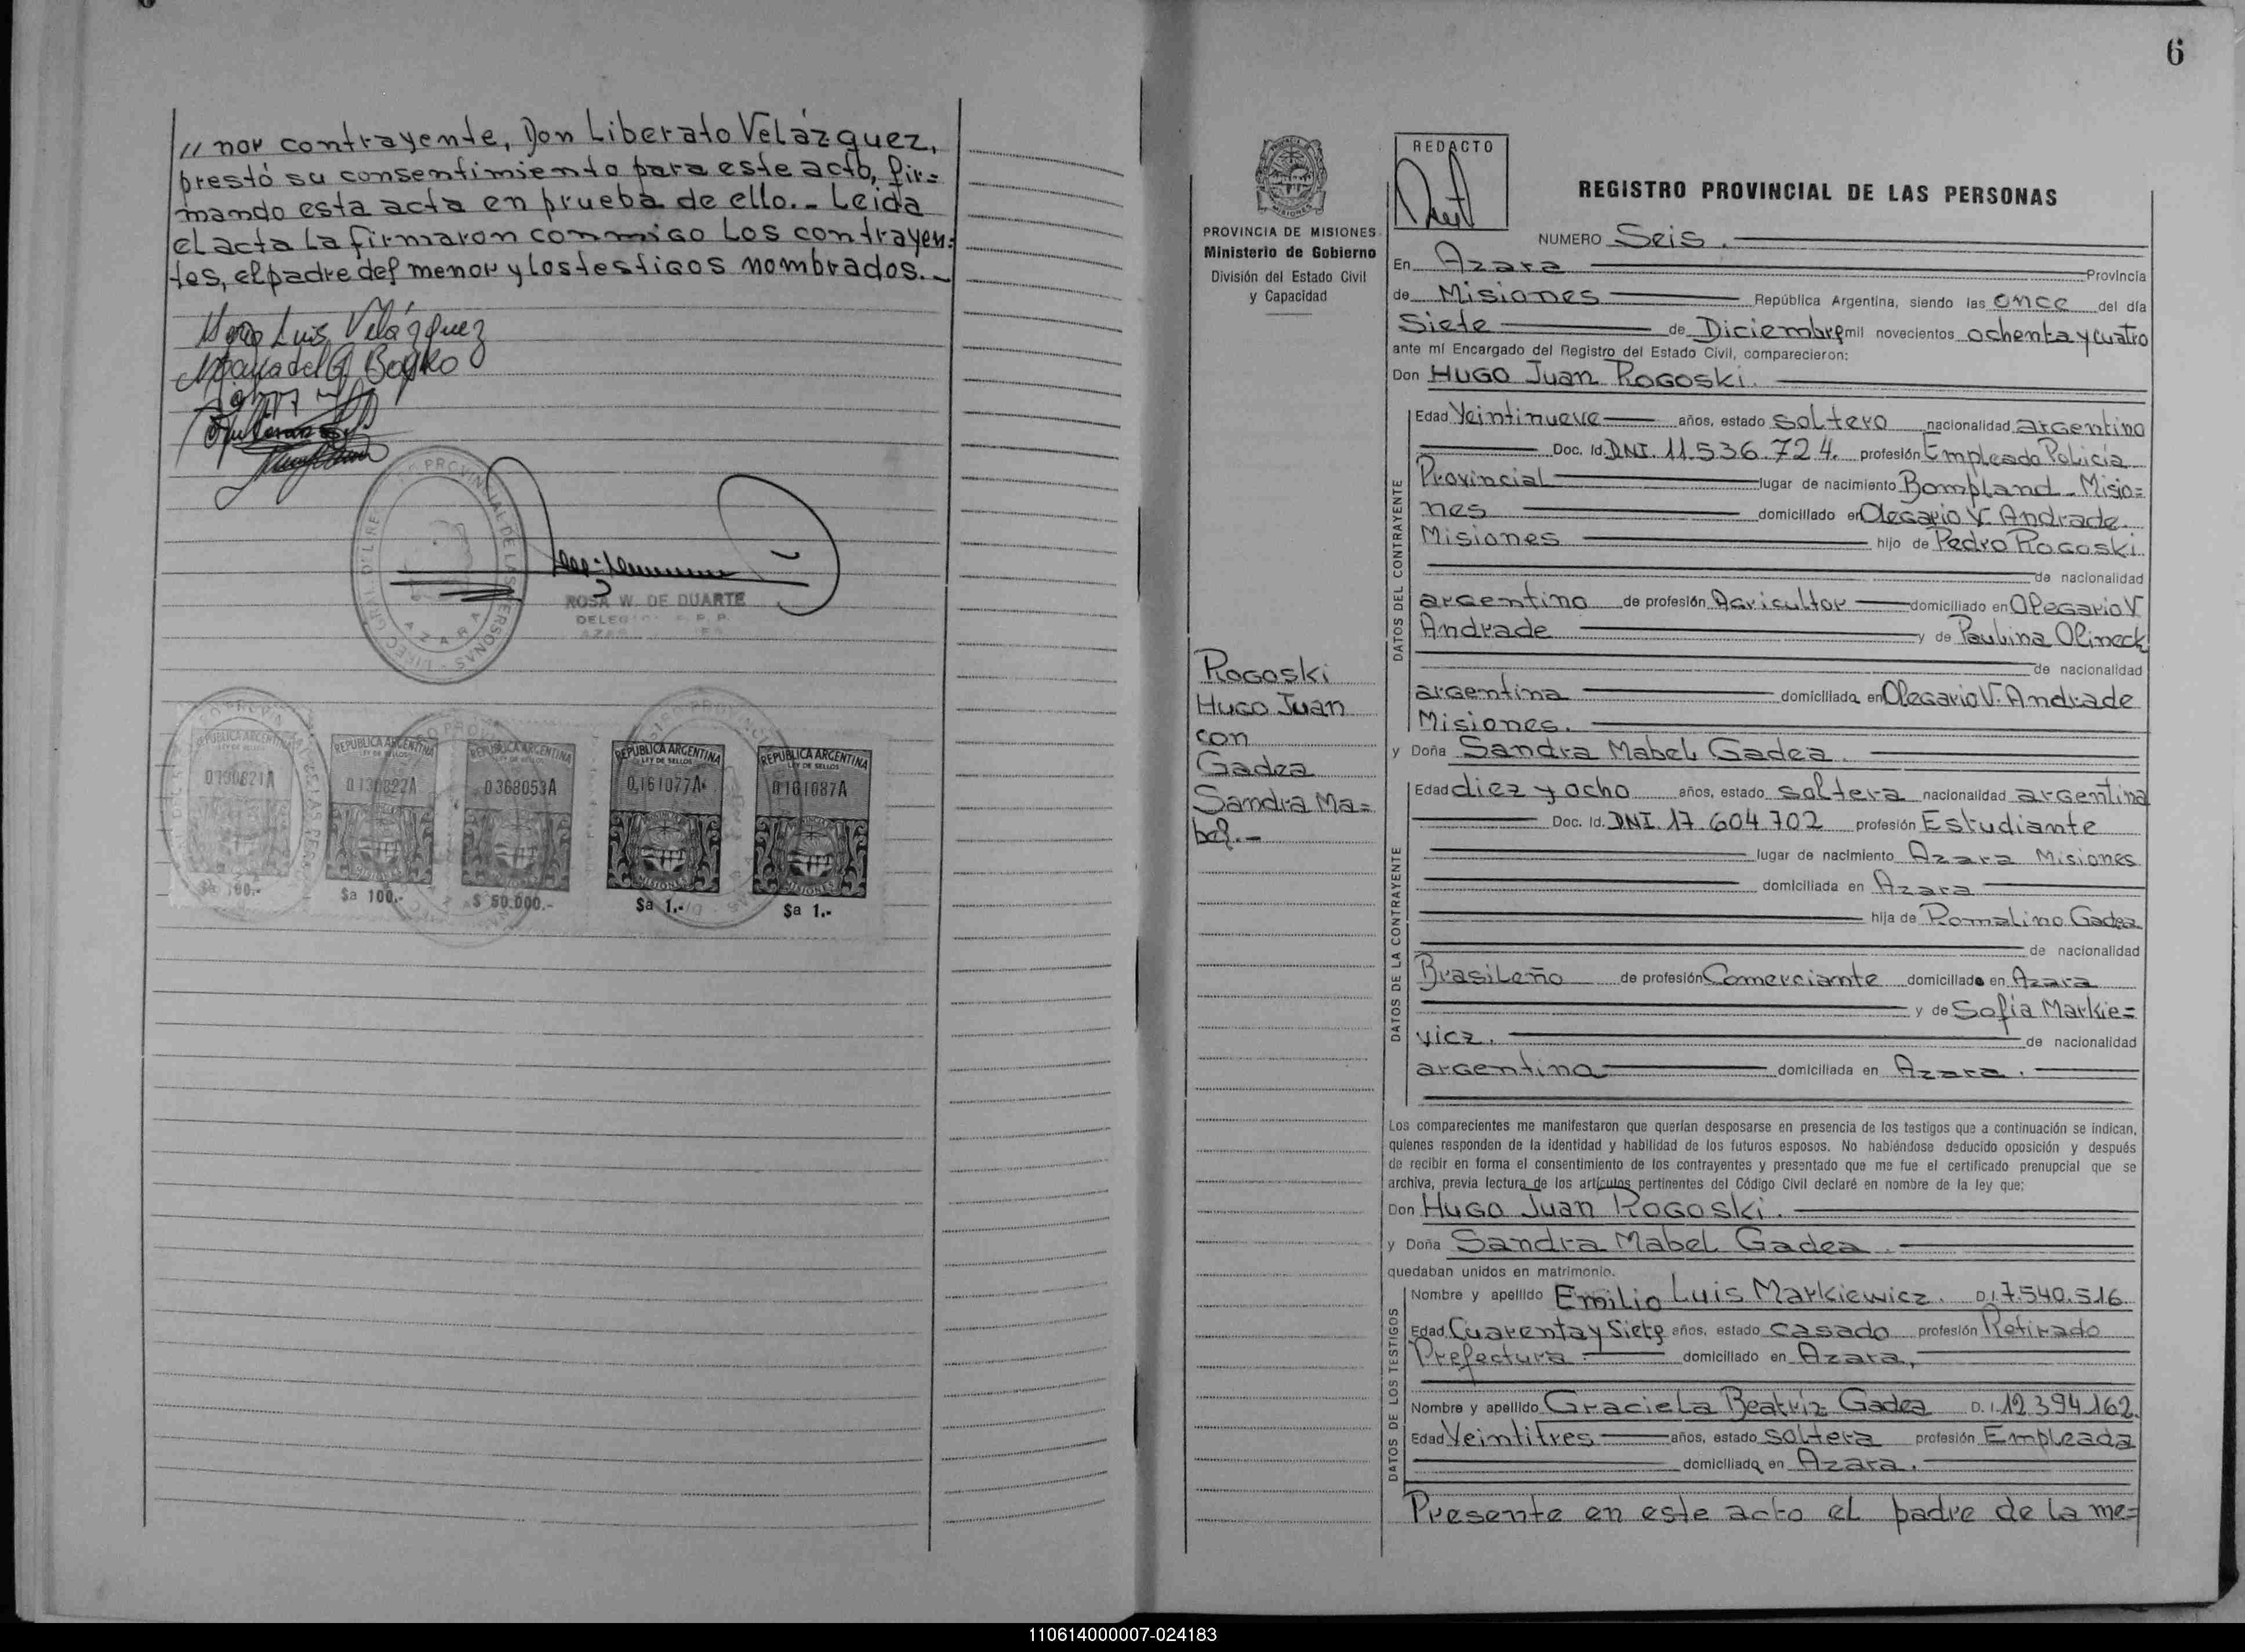 // nor contrayente, Don Liberato Velázquez,
prestó su consentimiento para este acto, fir=
mando esta acta en prueba de ello.- Leida
el acta la firmaron conmigo los contrayen=
tes, el padre del menor y los testigos nombrados.-
Luis Velázquez
Boyko
REGISTRO PROVINCIAL DE LAS PERSONAS
AZARA
ROSA W. DE DUARTE
REPUBLICA ARGENTINA
LEY DE SELLOS
0130821A
$a 100.-
REPUBLICA ARGENTINA
LEY DE SELLOS
0130822A
$a 100.-
REPUBLICA ARGENTINA
LEY DE SELLOS
0368053A
$ 50.000.-
REPUBLICA ARGENTINA
LEY DE SELLOS
0161077A
MISIONES
$a 1.-
REPUBLICA ARGENTINA
LEY DE SELLOS
0161087A
MISIONES
$a 1.-
6
MISIONES
PROVINCIA DE MISIONES
Ministerio de Gobierno
División del Estado Civil
y Capacidad
Rogoski
Hugo Juan
con
Gadea
Sandra Ma=
bel.-
REDACTO
REGISTRO PROVINCIAL DE LAS PERSONAS
NUMERO Seis.
En Azara Provincia
de Misiones República Argentina, siendo las once del día
Siete de Diciembre mil novecientos ochenta y cuatro
ante mí Encargado del Registro del Estado Civil, comparecieron:
Don Hugo Juan Rogoski.
DATOS DEL CONTRAYENTE
Edad Veintinueve años, estado soltero nacionalidad argentino
Doc. Id. DNI. 11.536.724. profesión Empleado Policía
Provincial lugar de nacimiento Bompland - Misio=
nes domiciliado en Olegario V. Andrade.
Misiones hijo de Pedro Rogoski
de nacionalidad
argentino de profesión Agricultor domiciliado en Olegario V.
Andrade y de Paulina Olineck
de nacionalidad
argentina domiciliada en Olegario V. Andrade
Misiones.
y Doña Sandra Mabel Gadea.
DATOS DE LA CONTRAYENTE
Edad diez y ocho años, estado soltera nacionalidad argentina
Doc. Id. DNI. 17.604.702 profesión Estudiante
lugar de nacimiento Azara Misiones
domiciliada en Azara
hija de Romalino Gadea
de nacionalidad
Brasileño de profesión Comerciante domiciliado en Azara
y de Sofía Markie=
vicz. de nacionalidad
argentina domiciliada en Azara.
Los comparecientes me manifestaron que querían desposarse en presencia de los testigos que a continuación se indican,
quienes responden de la identidad y habilidad de los futuros esposos. No habiéndose deducido oposición y después
de recibir en forma el consentimiento de los contrayentes y presentado que me fue el certificado prenupcial que se
archiva, previa lectura de los artículos pertinentes del Código Civil declaré en nombre de la ley que:
Don Hugo Juan Rogoski.
y Doña Sandra Mabel Gadea.
quedaban unidos en matrimonio.
DATOS DE LOS TESTIGOS
Nombre y apellido Emilio Luis Markiewicz. D.I. 7.540.516
Edad Cuarenta y Siete años, estado casado profesión Retirado
Prefectura domiciliado en Azara,
Nombre y apellido Graciela Beatríz Gadea D.I. 12.394.162.
Edad Veintitres años, estado soltera profesión Empleada
domiciliada en Azara.
Presente en este acto el padre de la me=
110614000007-024183